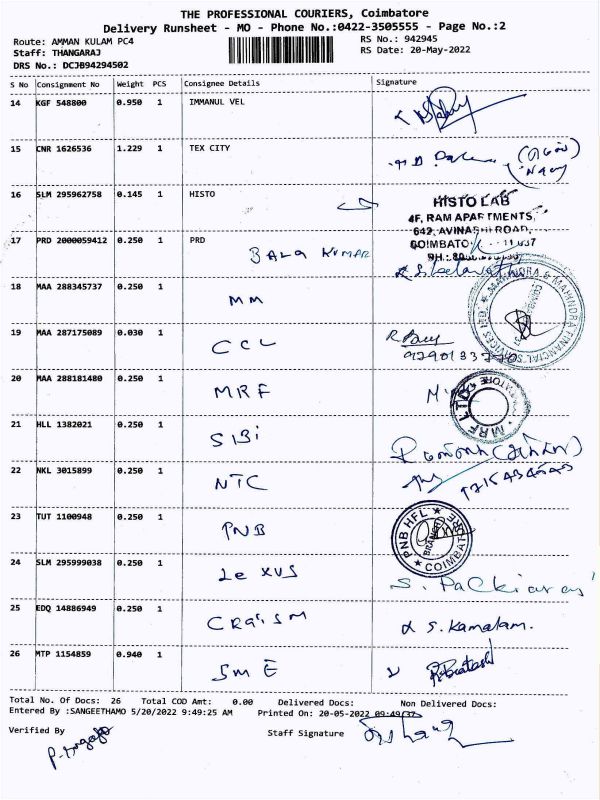 THE PROFESSIONAL COURIERS, Coimbatore
Delivery Runsheet - MO - Phone No.:0422-3505555 - Page No.:2
Route: AMMAN KULAM PC4
Staff: THANGARAJ
DRS No.: DCJB94294502
RS No.: 942945
RS Date: 20-May-2022
S No Consignment No Weight PCS Consignee Details Signature
14 KGF 548800 0.950 1 IMMANUL VEL
15 CNR 1626536 1.229 1 TEX CITY
16 SLM 295962758 0.145 1 HISTO
HISTO LAB
4F, RAM APARTMENTS,
642, AVINASHI ROAD,
17 PRD 2000059412 0.250 1 PRD
BALA KUMAR
18 MAA 288345737 0.250 1
MM
MAHINDRA & MAHINDRA FINANCIAL SERVICES LTD.
19 MAA 287175089 0.030 1
CCL
20 MAA 288181480 0.250 1
MRF
MRF LTD
21 HLL 1382021 0.250 1
SIBI
22 NKL 3015899 0.250 1
NTC
23 TUT 1100948 0.250 1
PNB
PNB HFL
BRANCH
COIMBATORE
24 SLM 295999038 0.250 1
LEXUS
S. Packiaraj
25 EDQ 14886949 0.250 1
S. Kamalam.
26 MTP 1154859 0.940 1
SME
Total No. Of Docs: 26 Total COD Amt: 0.00 Delivered Docs: Non Delivered Docs:
Entered By :SANGEETHAMO 5/20/2022 9:49:25 AM Printed On: 20-05-2022 09:49:37
Verified By
Staff Signature